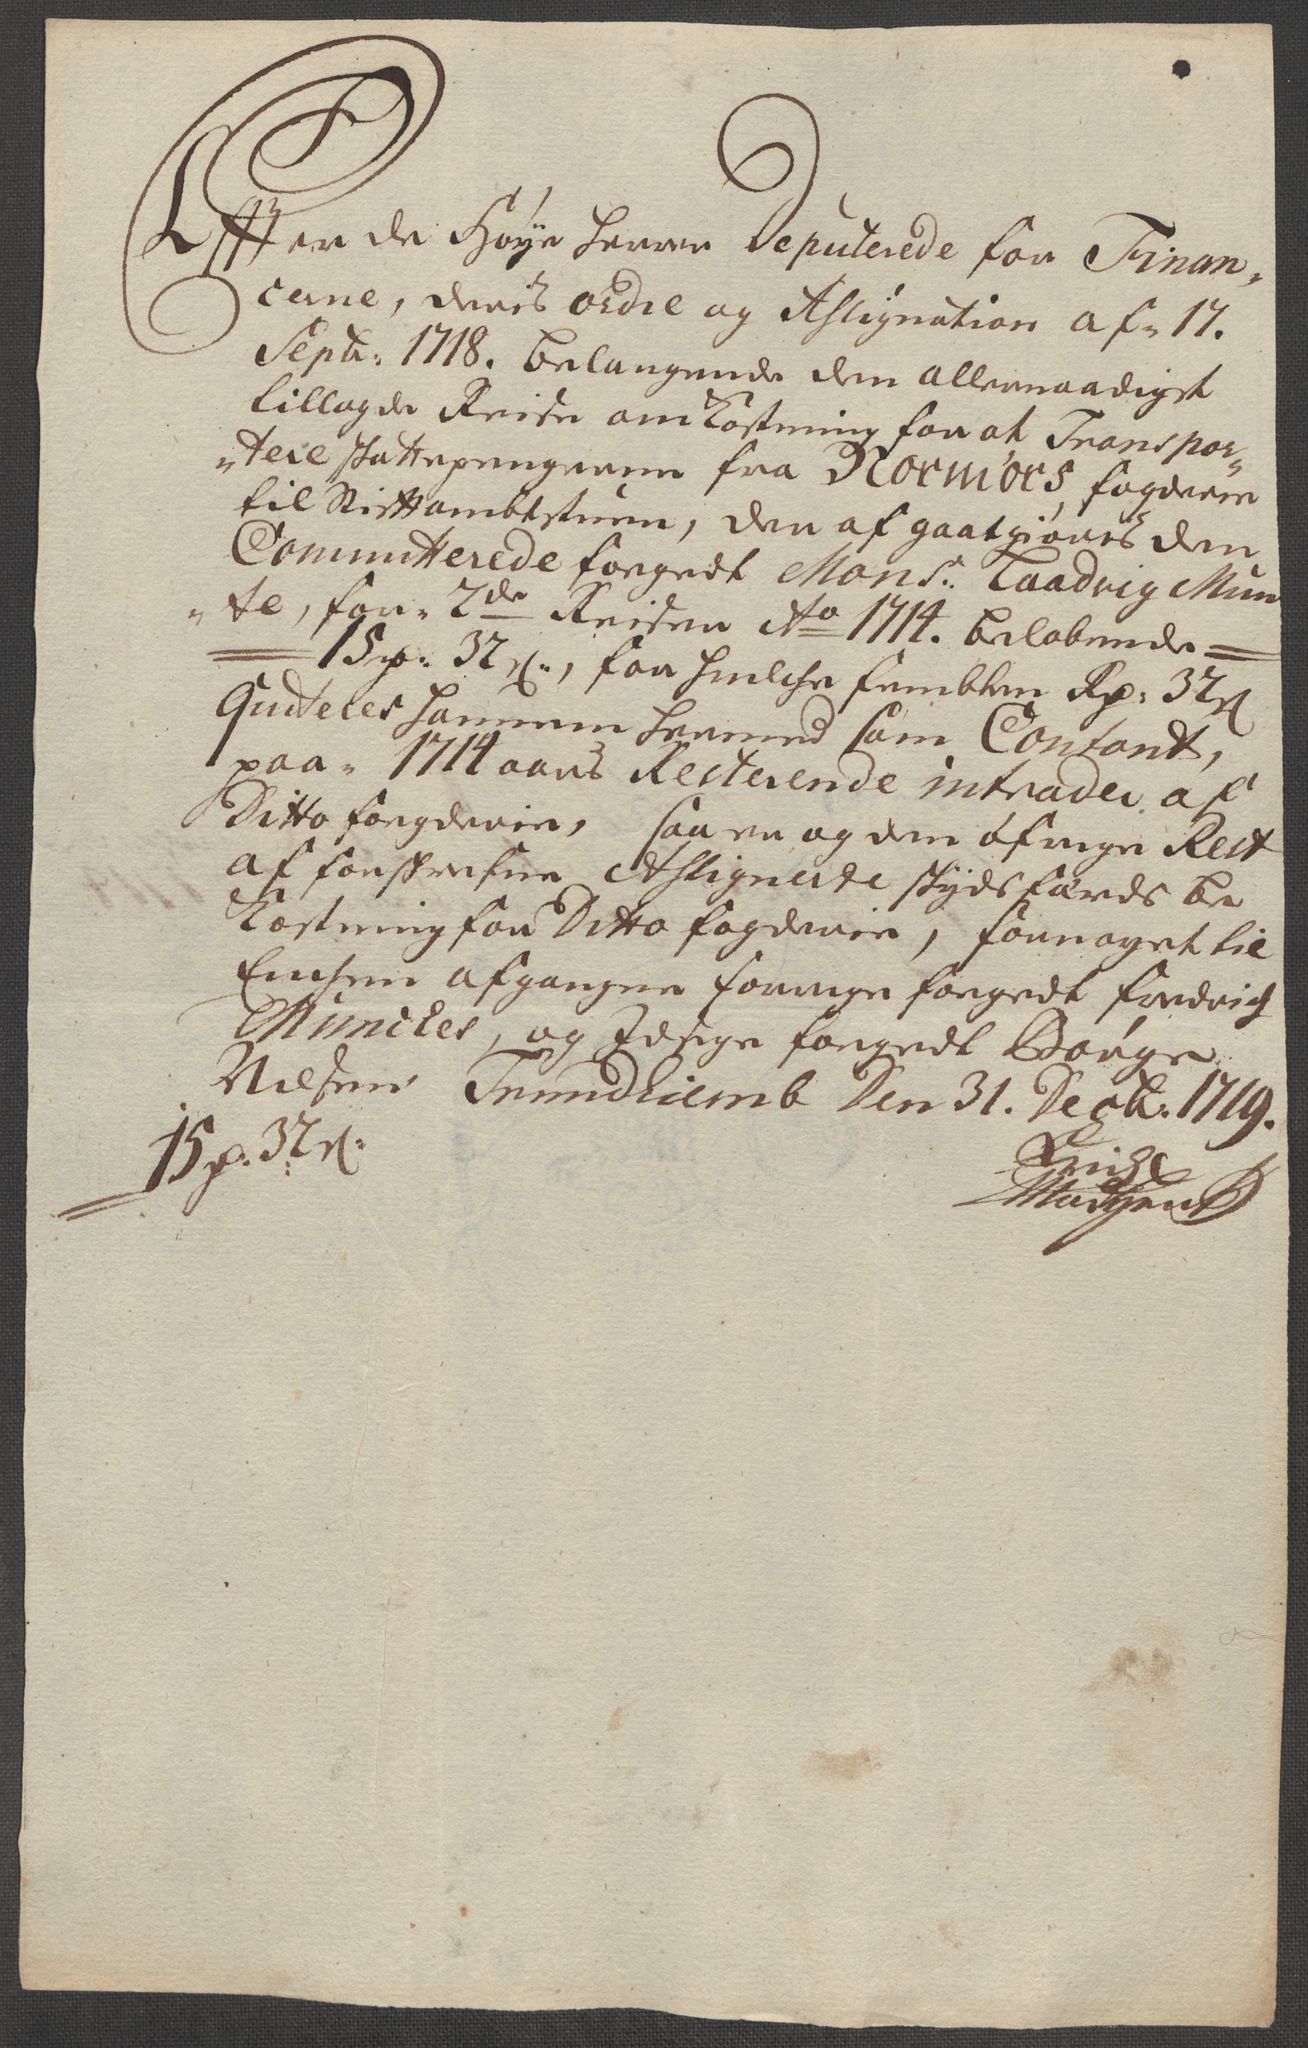 Effter de Høye Herrer Deputerede for Finan„
cerne, deris ordre og Assignation af„ 17.
Septr: 1718. belangende den allernaadigst
tillagde Reise omkostning for at Transpor„
„tere skattepengerne fra Normørs fogderie
til Stiftambtstuen, der af gaatgiøres den
Committerede foegedt Monsr: Laadvig Mun
„te, for„ 2de Reiser Ao 1714. beløbende
15 rp: 32 s:, for hvilche fembten Rp: 32 s
Qviteres hannem hermed som Contant,
paa„ 1714 aars Resterende intrader af
Ditto foegderie, saa er og den øfrige Rest
af forskrefne Assignerte skydsfærds be
kostning for Ditto fogderie, fornøyet til
Enchen afgangne forrige foegedt Fredrich
Munches, og Idsige foegedt Børge
Nielsen Trundhiemb Den 31. Decbr: 1719.
15 rp: 32 s: